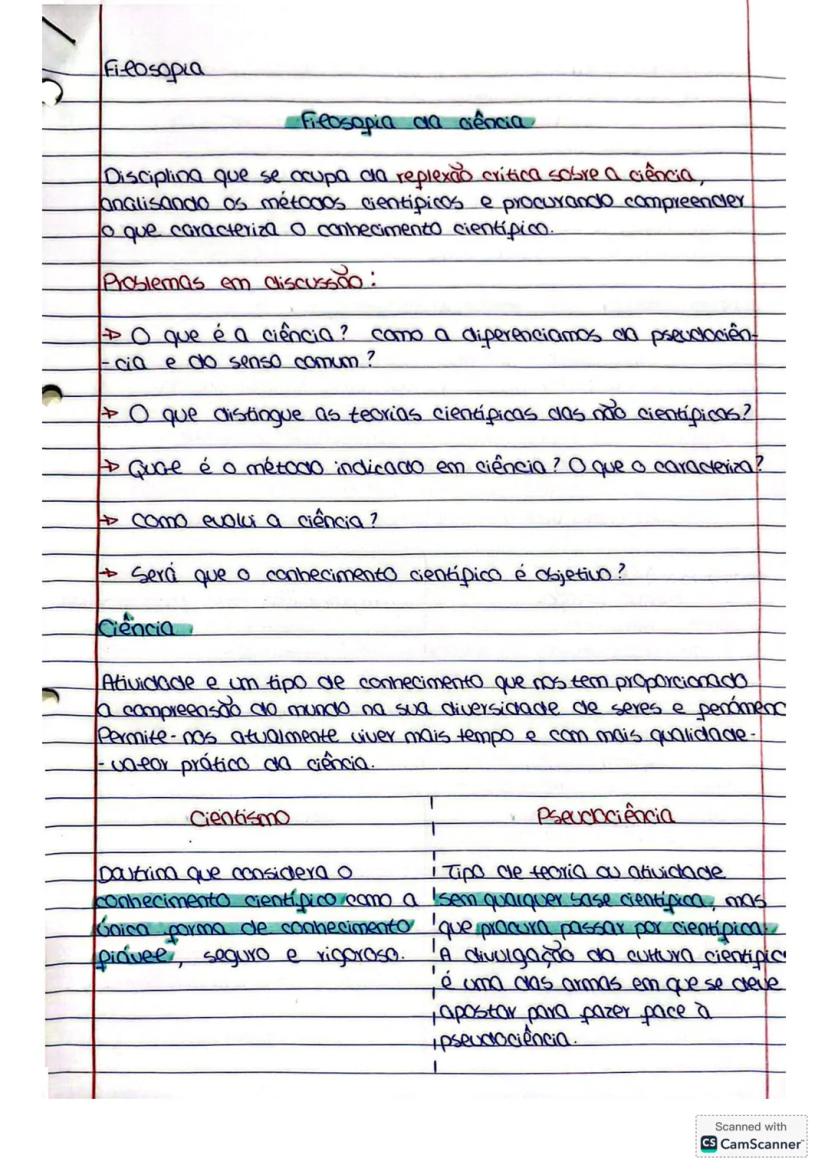 Filosofia
Filosofia da ciência
Disciplina que se ocupa da reflexão crítica sobre a ciência,
analisando os métodos científicos e procurando compreender
o que caracteriza o conhecimento científico.
Problemas em discussão:
→ O que é a ciência? Como a diferenciamos da pseudociên-
-cia e do senso comum?
→ O que distingue as teorias científicas das não científicas?
→ Qual é o método indicado em ciência? O que o caracteriza?
→ Como evolui a ciência?
→ Será que o conhecimento científico é objetivo?
Ciência
Atividade e um tipo de conhecimento que nos tem proporcionado
a compreensão do mundo na sua diversidade de seres e fenómeno
Permite-nos atualmente viver mais tempo e com mais qualidade-
-valor prático da ciência.
Cientismo
Doutrina que considera o
conhecimento científico como a
única forma de conhecimento
fiável, seguro e rigoroso.
Pseudociência
Tipo de teoria ou atividade
sem qualquer base científica, mas
que procura passar por científica.
A divulgação da cultura científic
é uma das armas em que se deve
apostar para fazer face à
pseudociência.
Scanned with
CS CamScanner